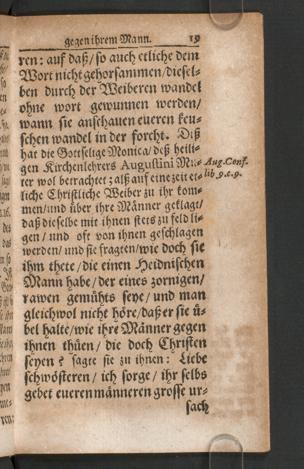 gegen ihrem Mann. 19
ren: auf daß/ so auch etliche dem
Wort nicht gehorsammen/ diesel-
ben durch der Weiberen wandel
ohne wort gewunnen werden/
wann sie anschauen eueren keu-
schen wandel in der forcht. Diß
hat die Gottselige Monica/ deß heili-
gen Kirchenlehrers Augustini Mu-
Aug. Conf.
ter wol betrachtet: alß auf eine zeit et-
lib. 9. c. 9.
liche Christliche Weiber zu ihr kom-
men/ und über ihre Männer geklagt/
daß dieselbe mit ihnen stets zu feld li-
gen/ und oft von ihnen geschlagen
werden/ und sie fragten/ wie doch sie
ihm thete/ die einen Heidnischen
Mann habe/ der eines zornigen/
rawen gemühts seye/ und man
gleichwol nicht höre/ daß er sie ü-
bel halte/ wie ihre Männer gegen
ihnen thüen/ die doch Christen
seyen? sagte sie zu ihnen: Liebe
schwösteren/ ich sorge/ ihr selbs
gebet eueren männeren grosse ur-
sach